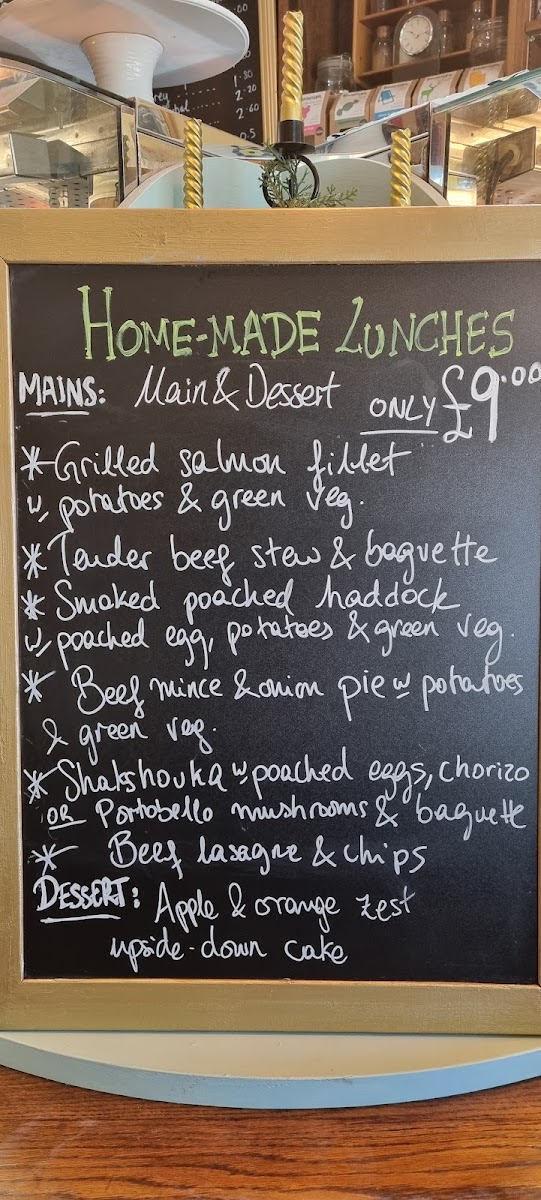 HOME-MADE LUNCHES
MAINS: Main & Dessert ONLY £9.00
* Grilled salmon fillet
w/ potatoes & green veg.
* Tender beef stew & baguette
* Smoked poached haddock
w/ poached egg, potatoes & green veg.
* Beef mince & onion pie w potatoes
& green veg.
* Shakshouka w poached eggs, chorizo
OR Portobello mushrooms & baguette
* Beef lasagne & chips
DESSERT: Apple & orange zest
upside-down cake